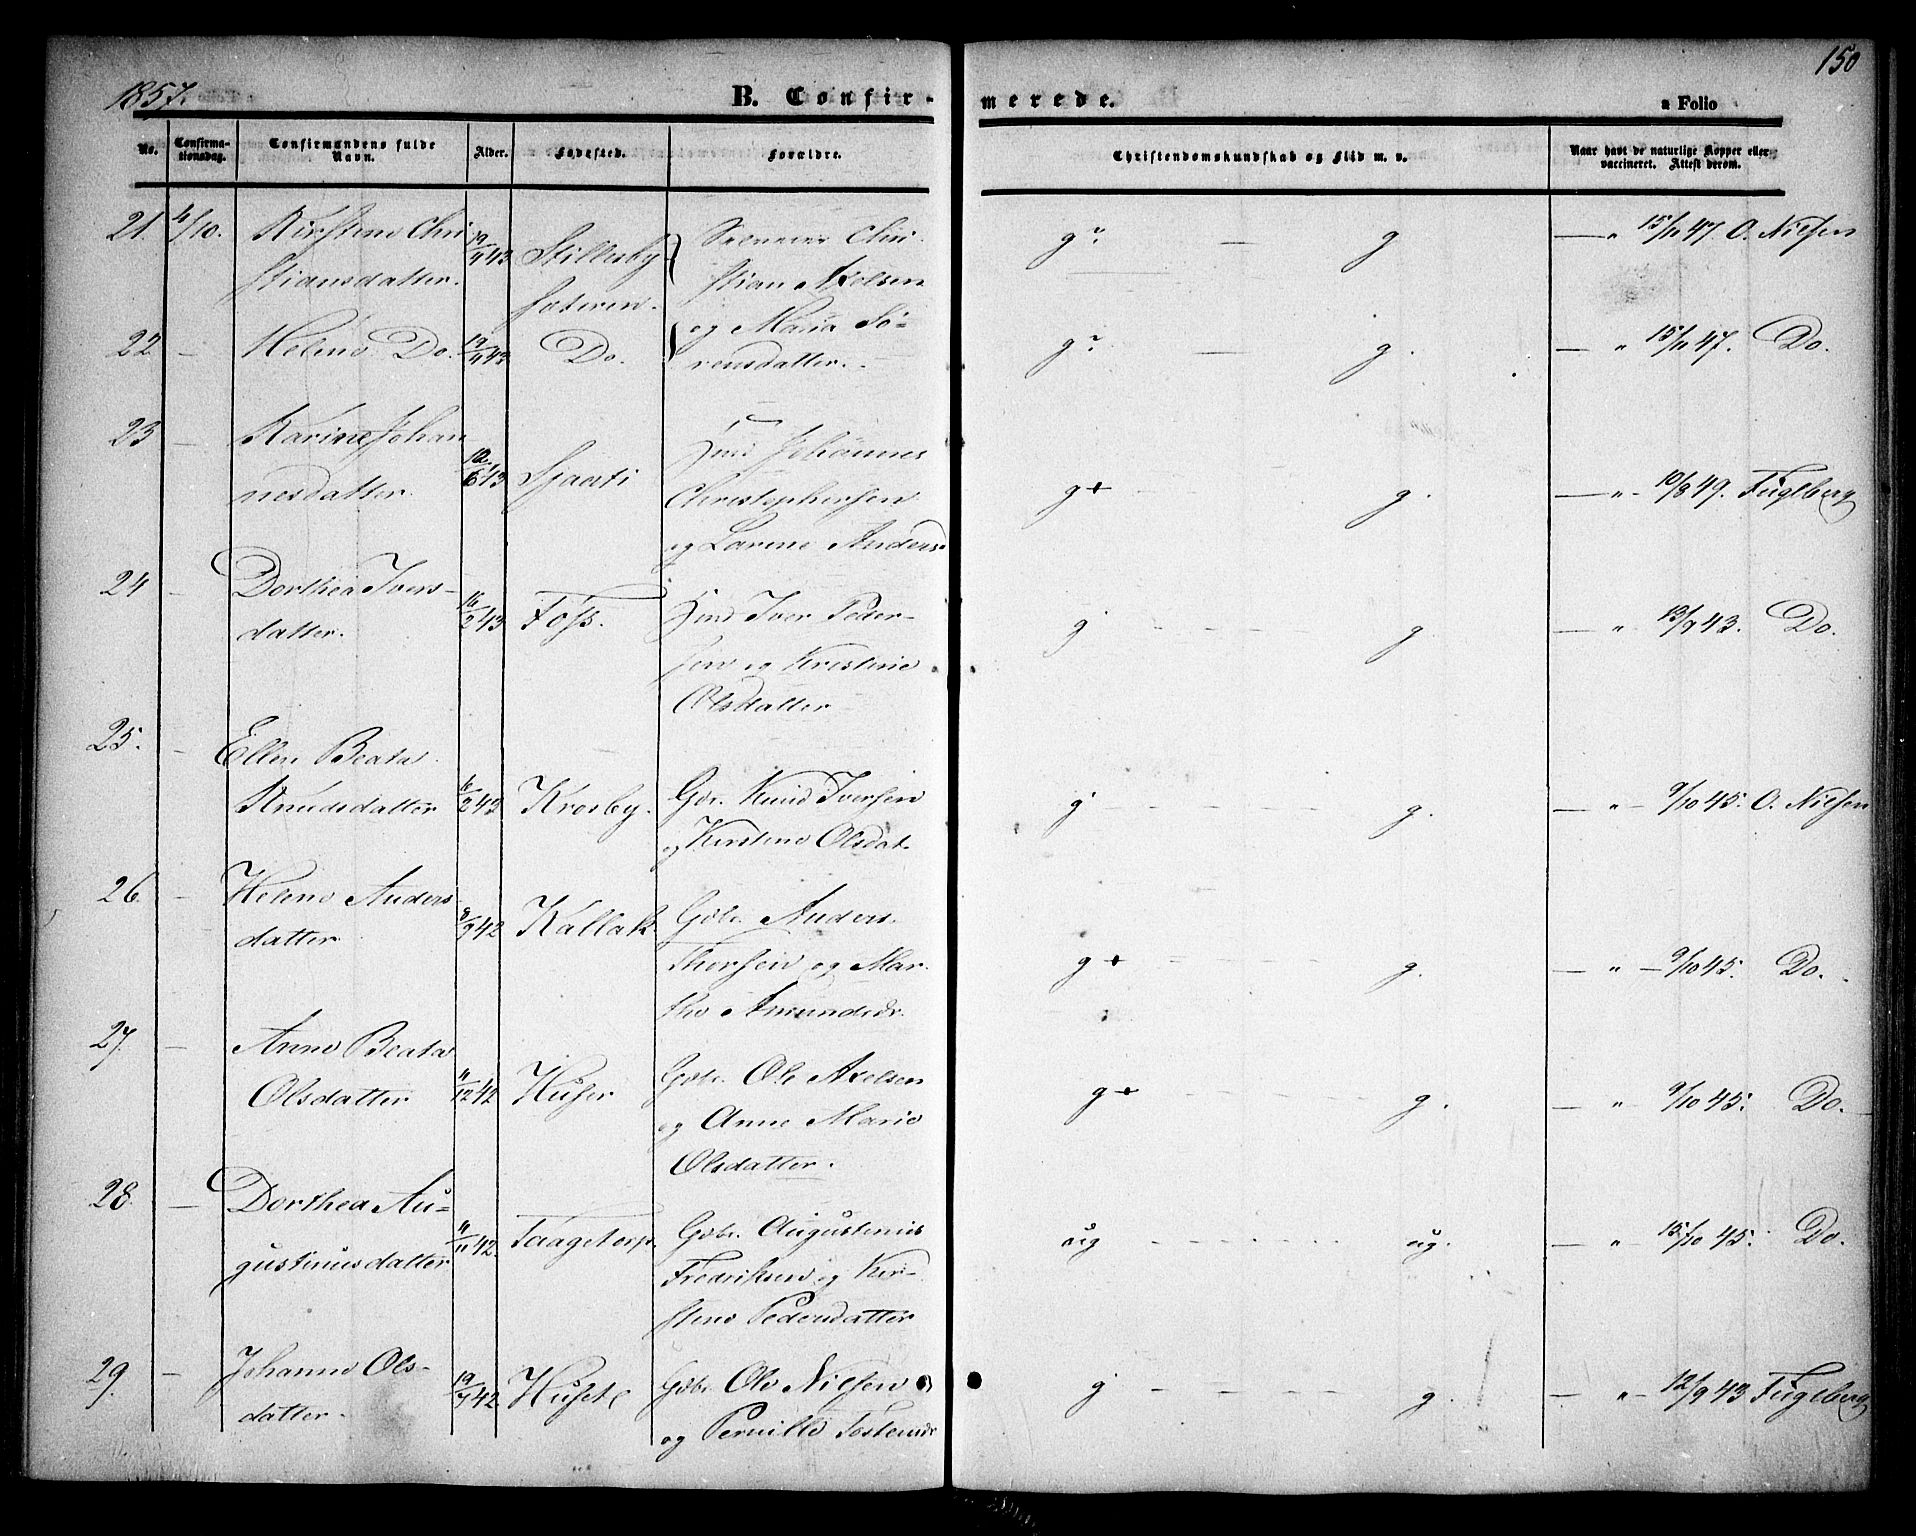 1857.
B. Confir-
merede.
150
a Folio
No.
Confirma-
tionsdag.
Confirmandens fulde
Navn.
Alder.
Fødested.
Forældre.
Christendomskundskab og Flid m. v.
Naar havt de naturlige Kopper eller
vaccineret. Attest derom.
21. 4/10. Kirstine Chri
stiansdatter. 19/11 43 Stillesby
Chri-
stian Axelsen
g? — g — „ 15/11 47 O. Nilsen
22 — Helene Do. 19/11 43 Do.
og Maria Sö-
rensdatter.
g? — g. — „ 15/11 47. Do.
23 — Karine Johan
nesdatter. 10/6 43
Johannes
Christophersen
og Larine Anders
g+ - - g. — „ - 10/8 49. Fuglberg
24 — Dorthea Ivers-
datter. 16/2 43 Foss.
Iver Peder-
sen og Kirstine
Olsdatter
g - - - g. — „ 13/9 43. Do.
25. — Ellen Beate
Knudsdatter 6/2 42 Krosby.
Gbr. Knud Iversen
og Kirstine Olsdat.
g - - - g. — „ - 9/10 45. O. Nilsen
26. — Helene Anders
datter 8/9 42 Kallak
Gbr. Anders
Thorsen og Mar-
the Amundsdr.
g+ - - - g. — „ - 9/10 45. Do.
27. — Anne Beate
Olsdatter 11/12 42 Huser
Gbr. Ole Axelsen
og Anne Marie
Olsdatter.
g+ - - - g. — „ - 9/10 45. Do.
28. — Dorthea Au-
gustinusdatter 11/11 42. Taagetorp.
Gbr. Augustinus
Fredriksen og Kir-
stine Pedersdatter
ug - - - ug. — „ 15/10 45. Do.
29. — Johanne Ols-
datter. 19/7 42
Gbr. Ole Nilsen
og Pernille Tostensdr
g - - - g. — „ - 12/9 43 Fuglberg